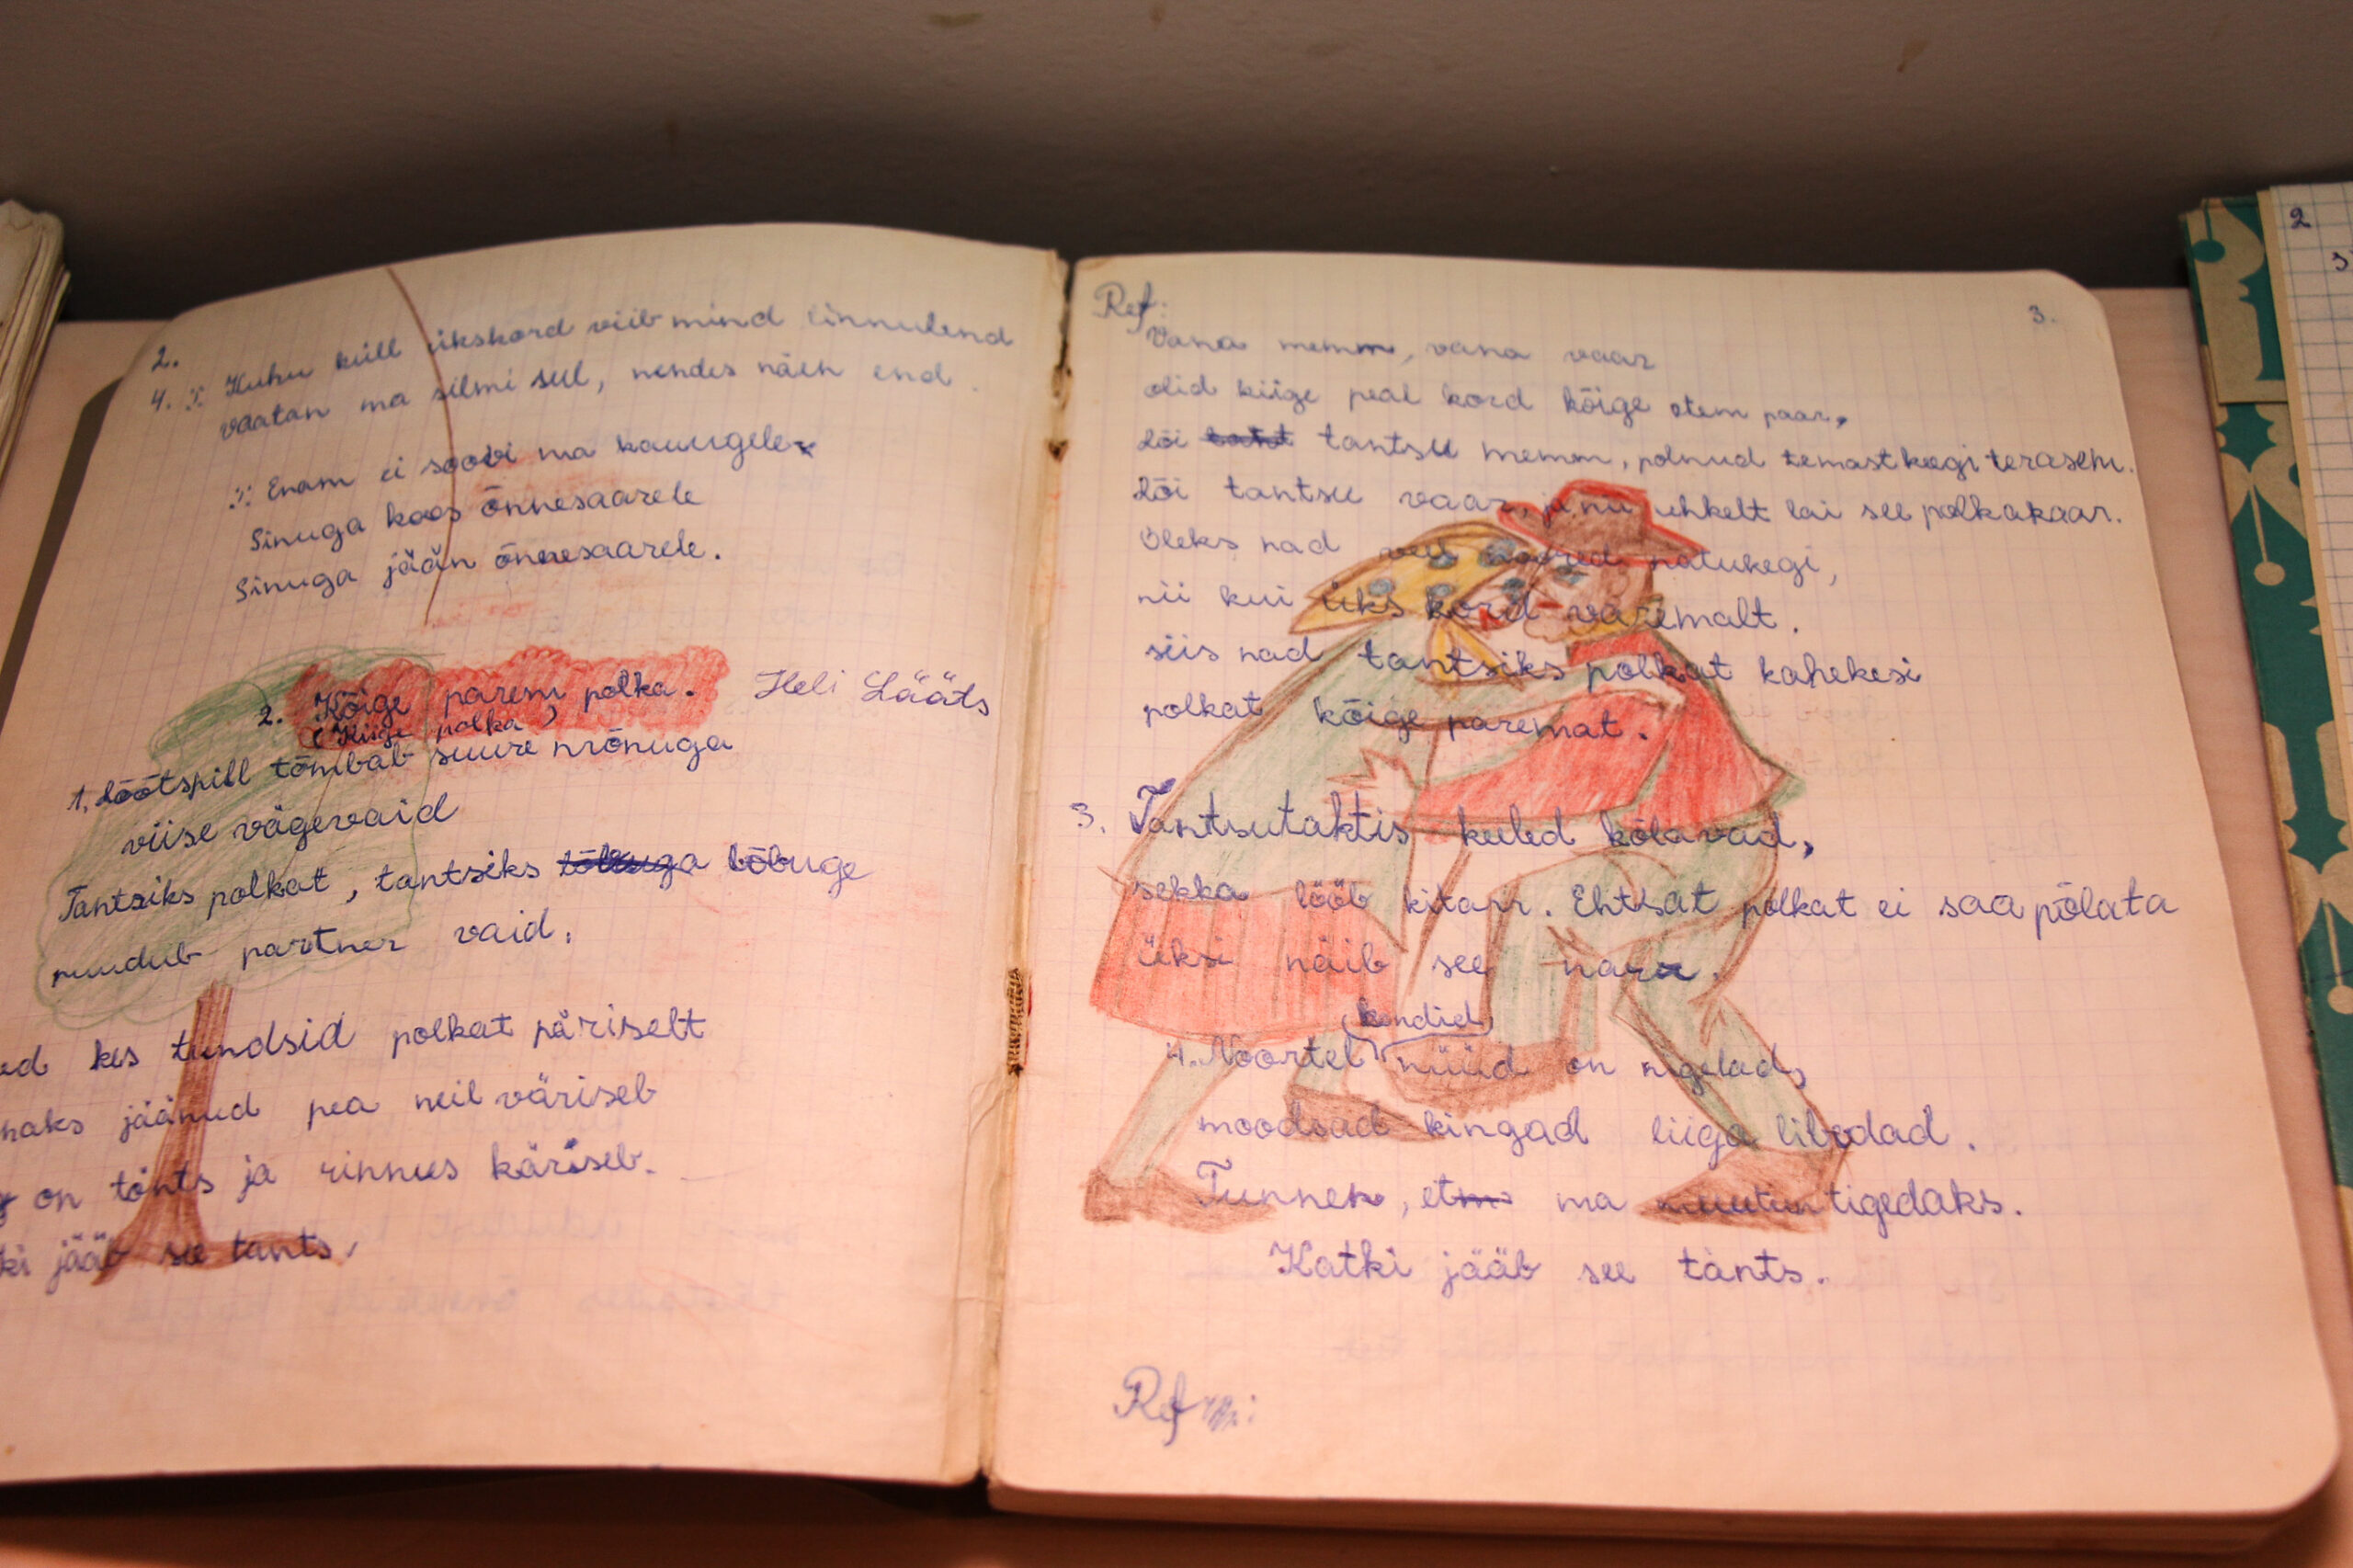 2.
4. :/: Kuhu küll ükskord viib mind linnulend
vaatan ma silmi sul, nendes näen end.
:/: Enam ei soovi ma kaugele
Sinuga koos õnnesaarele
Sinuga jään õnnesaarele.
2. Kõige parem polka. Heli Lääts
(Kiige polka)
1. Lõõtspill tõmbab suure mõnuga
viise vägevaid
Tantsiks polkat, tantsiks lõbuga lõbuge
puudub partner vaid.
ed kes tundsid polkat päriselt
naks jäänud pea neil väriseb
on tönts ja rinnus käriseb.
ki jääb see tants.
Ref:
3.
Vana memm, vana vaar
olid kiige peal kord kõige etem paar,
Lõi tantsu memm, polnud temast keegi terasem.
Lõi tantsu vaar, ja nii uhkelt lai see polkakaar.
Oleks nad veel noored natukegi,
nii kui ükskord varemalt.
siis nad tantsiks polkat kahekesi
polkat kõige paremat.
3. Tantsutaktis keeled kõlavad,
sekka lööb kitarr. Ehtsat polkat ei saa põlata
üksi näib see narr.
kondid
4. Noortel nüüd on nigelad,
moodsad kingad liiga libedad.
Tunnen, et ma muutun tigedaks.
Katki jääb see tants.
Ref :
2